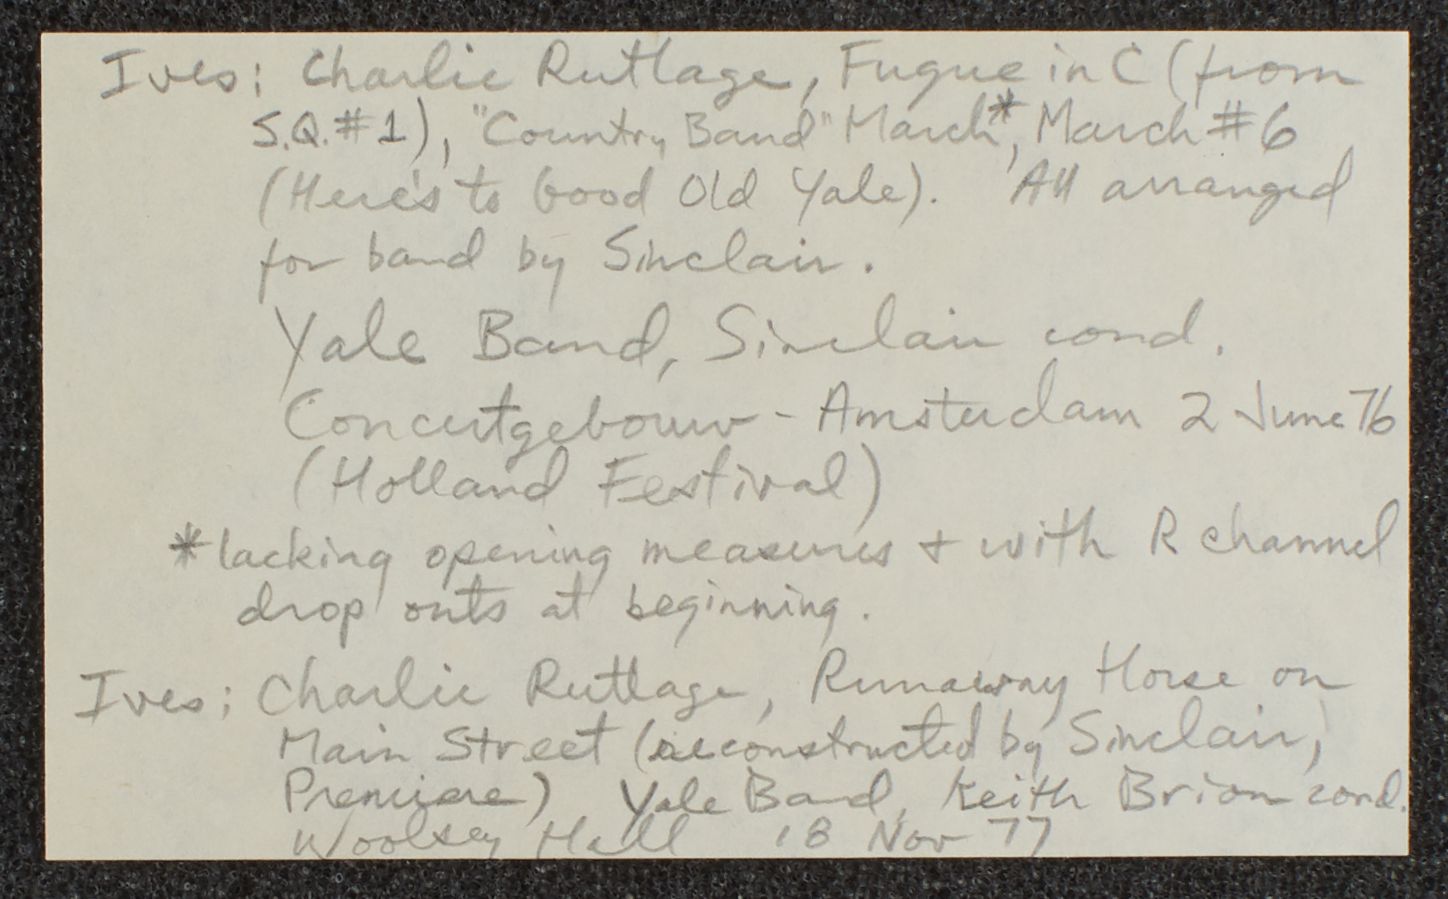 Ives: Charlie Rutlage, Fugue in C (from
S.Q. #1), "Country Band" March*, March #6
(Here's to Good Old Yale). All arranged
for band by Sinclair.
Yale Band, Sinclair cond.
Concertgebouw - Amsterdam 2 June 76
(Holland Festival)
*lacking opening measures + with R channel
drop outs at beginning.
Ives: Charlie Rutlage, Runaway Horse on
Main Street (reconstructed by Sinclair;
Premiere) Yale Band, Keith Brion cond.
Woolsey Hall 18 Nov 77